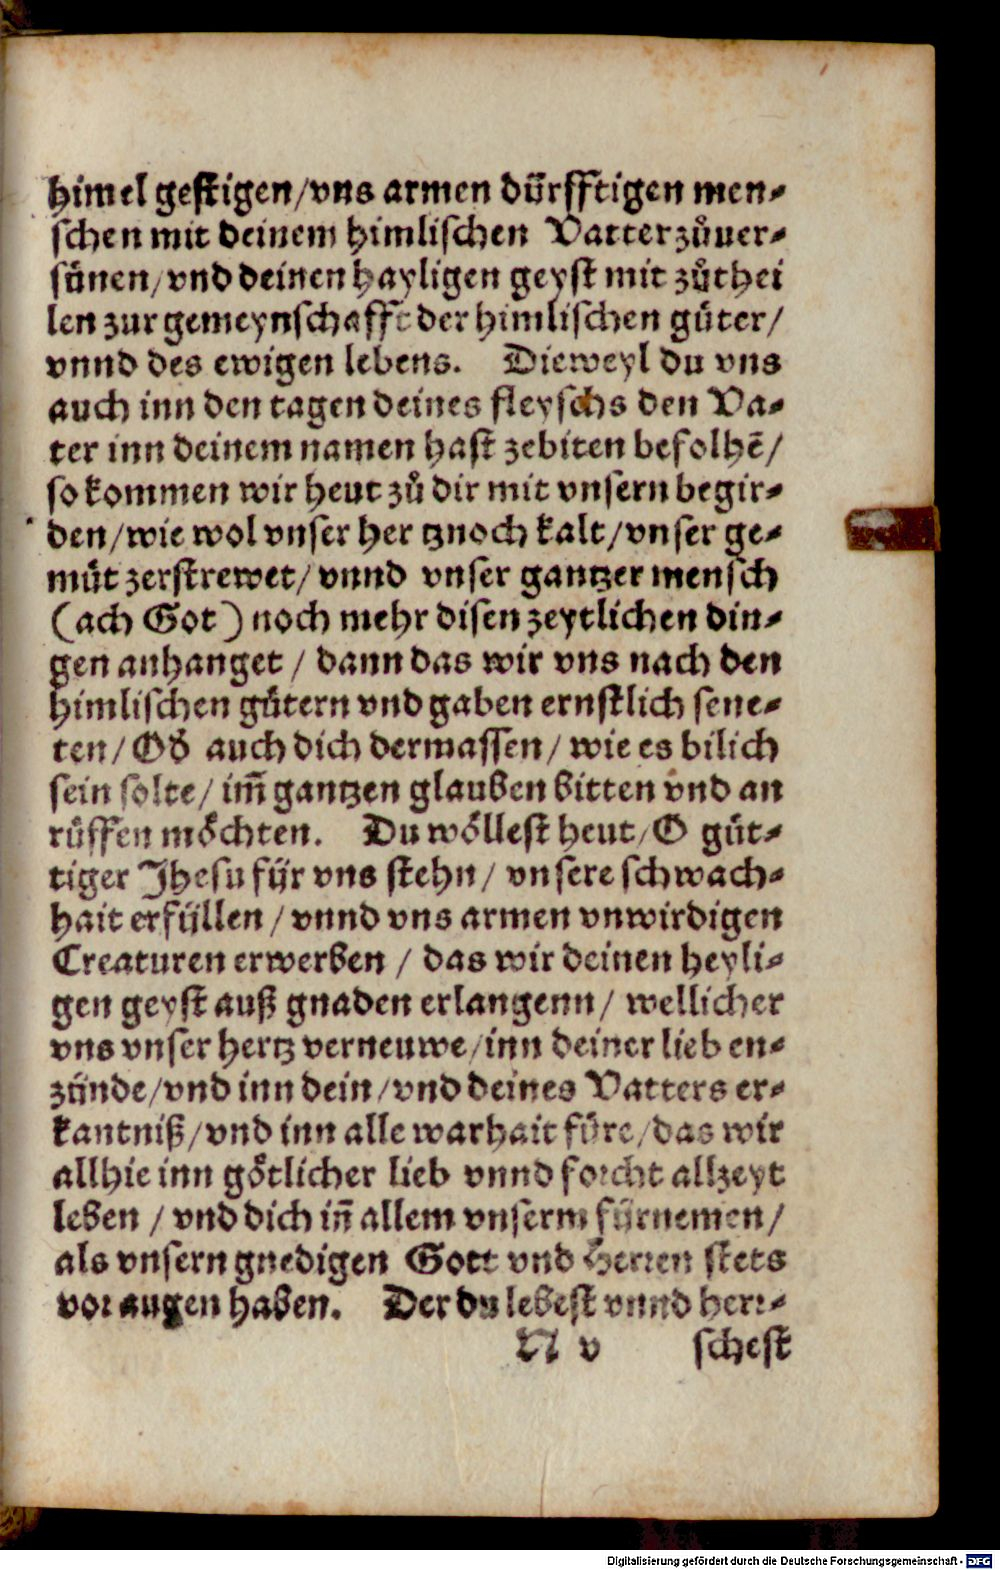 himel gestigen/vns armen dürfftigen men-
schen mit deinem himlischen Vatter zůuer-
sünen/vnd deinen hayligen geyst mit zůthei
len zur gemeynschafft der himlischen güter/
vnnd des ewigen lebens. Dieweyl du vns
auch inn den tagen deines fleyschs den Va-
ter inn deinem namen hast zebiten befolhẽ/
so kommen wir heut zů dir mit vnsern begir-
den/wie wol vnser her tznoch kalt/vnser ge-
müt zerstrewet/vnnd vnser gantzer mensch
(ach Got) noch mehr disen zeytlichen din-
gen anhanget/ dann das wir vns nach den
himlischen gütern vnd gaben ernstlich sene-
ten/Ob auch dich dermassen/wie es bilich
sein solte/im̃ gantzen glauben bitten vnd an
rüffen möchten. Du wöllest heut/O güt-
tiger Jhesu für vns stehn/ vnsere schwach-
hait erfüllen/vnnd vns armen vnwirdigen
Creaturen erwerben/ das wir deinen heyli-
gen geyst auß gnaden erlangenn/ wellicher
vns vnser hertz verneuwe/inn deiner lieb en-
zünde/vnd inn dein/vnd deines Vatters er-
kantniß/vnd inn alle warhait füre/das wir
allhie inn götlicher lieb vnnd forcht allzeyt
leben/vnd dich iñ allem vnserm fürnemen/
als vnsern gnedigen Gott vnd Herren stets
vor augen haben. Der du lebest vnnd herr-
N v schest
Digitalisierung gefördert durch die Deutsche Forschungsgemeinschaft - DFG